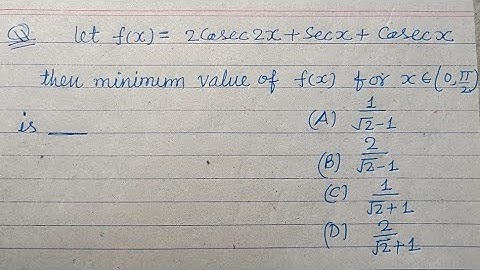 Q. Let f(x) = 2Cosec2x + Secx + Cosecx
then minimum value of f(x) for x ∈ (0, π/2)
is ___
(A) 1/(√2-1)
(B) 2/(√2-1)
(C) 1/(√2+1)
(D) 2/(√2+1)